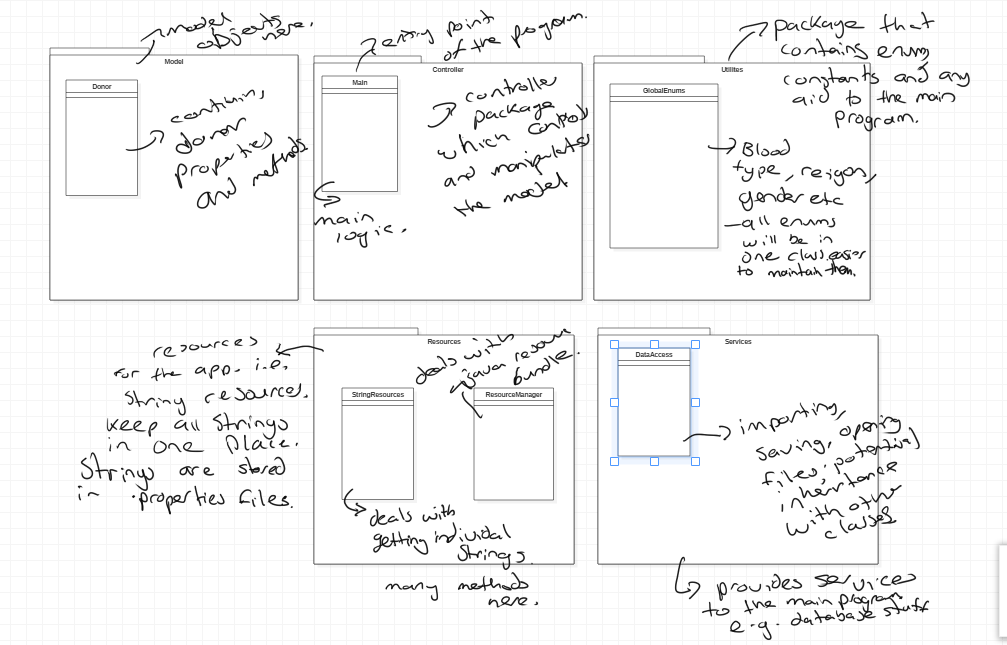 model
objects
here.
Model
Donor
contains
donor
properties
and methods
entry point
of the program.
Controller
Main
controller
package
which controls
and manipulates
the model
main
logic.
package that
contains enum
constants and any
aid to the main
program.
Utilites
GlobalEnums
Blood
type, reigon,
gender etc
all enums
will be in
one class, easier
to maintain them.
resources
for the app. i.e.
string resources.
keep all strings
in one place.
Strings are stored
in .properties files.
Resources
deals with
java resource
bundle.
StringResources
ResourceManager
deals with
getting individal
strings.
many methods
here.
Services
DataAccess
importing,
saving, opening
files, potential
inheritance
with other
classes
provides services
to the main program
e.g. database stuff